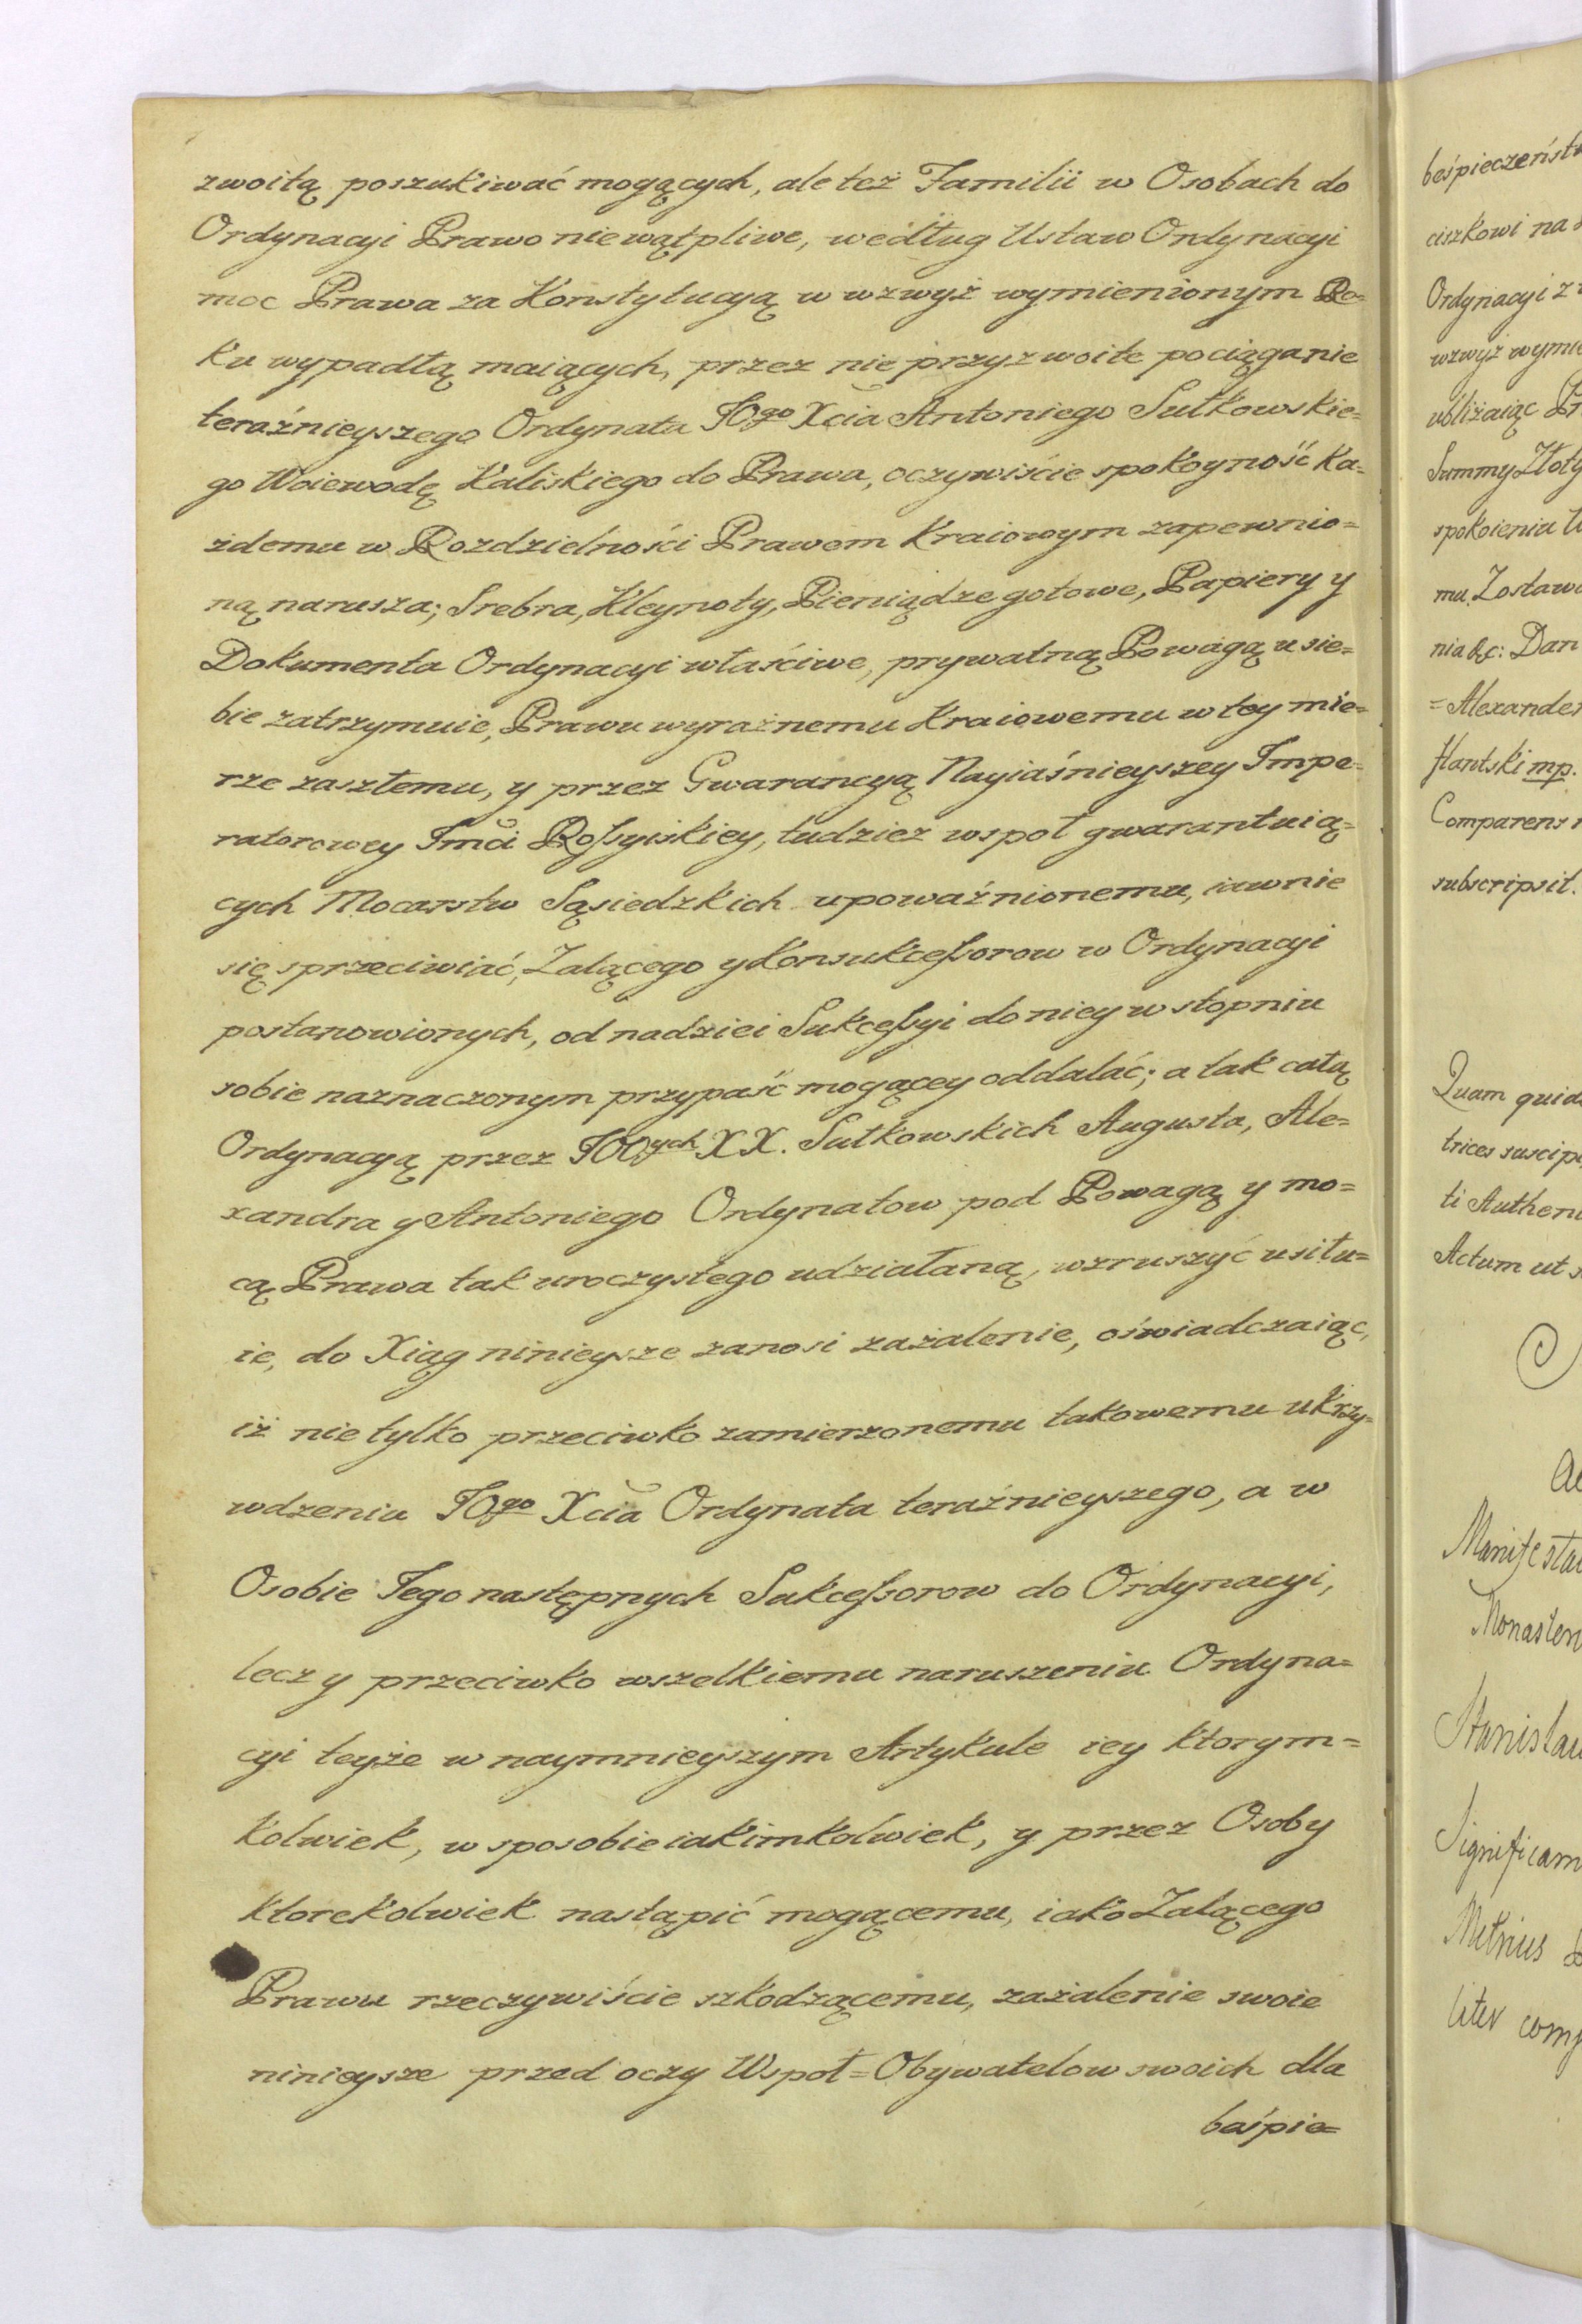 zwoitą poszukiwać mogących, ale też Familii w Osobach do
Ordynacyi Prawo niewątpliwe, według Ustaw Ordynacyi
moc Prawa za Konstytucyą w wzwyż wymienionym Ro=
ku wypadłą maiących, przez nie przyzwoite pociąganie
teraźnieyszego Ordynata JOgo Xcia Antoniego Sułkowskie=
go Woiewodę Kaliskiego do Prawa, oczywiście spokoyność ka=
żdemu w Rozdzielności Prawem Kraiowym zapewnio=
ną narusza; Srebra, Kleynoty, Pieniądze gotowe, Papiery y
Dokumenta Ordynacyi właściwe, prywatną Powagą u sie=
bie zatrzymuie, Prawu wyraźnemu Kraiowemu w tey mie=
rze zaszłemu, y przez Gwarancyą Nayiaśnieyszey Impe=
ratorowey Jmci Roſsyiskiey, tudzież wspoł gwarantuią=
cych Mocarstw Sąsiedzkich upoważnionemu, iawnie
się sprzeciwiać, Żalącego y Konsukceſsorow w Ordynacyi
postanowionych, od nadziei Sukceſsyi do niey w stopniu
sobie naznaczonym przypaść mogącey oddalać; a tak całą
Ordynacyą przez JOOych XX. Sułkowskich Augusta, Ale=
xandra y Antoniego Ordynatow pod Powagą y mo=
cą Prawa tak uroczystego udziałaną, wzruszyć usiłu=
ie, do Xiąg ninieysze zanosi zażalenie, oświadczaiąc,
iż nie tylko przeciwko zamierzonemu takowemu ukrzy=
wdzeniu JOgo Xcia Ordynata teraźnieyszego, a w
Osobie Jego następnych Sukceſsorow do Ordynacyi,
lecz y przeciwko wszelkiemu naruszeniu Ordyna=
cyi teyże w naymnieyszym Artykule iey ktorym=
kolwiek, w sposobie iakimkolwiek, y przez Osoby
ktorekolwiek nastąpić mogącemu, iako Żalącego
Prawu rzeczywiście szkodzącemu, zażalenie swoie
ninieysze przed oczy Wspoł=Obywatelow swoich dla
beśpie=
beśpieczeństw
ciszkowi na
Ordynacyi z
wzwyż wymie
ubliżaiąc
Summy Złoty
spokoienia
mu. Zostawu
Dan
=Alexander
mp.
Comparens
subscripsit.
Quam quid
trices suscip
ti Authen
Actum ut
Manifesta
Monaster
Stanislau
Significam
liter comp